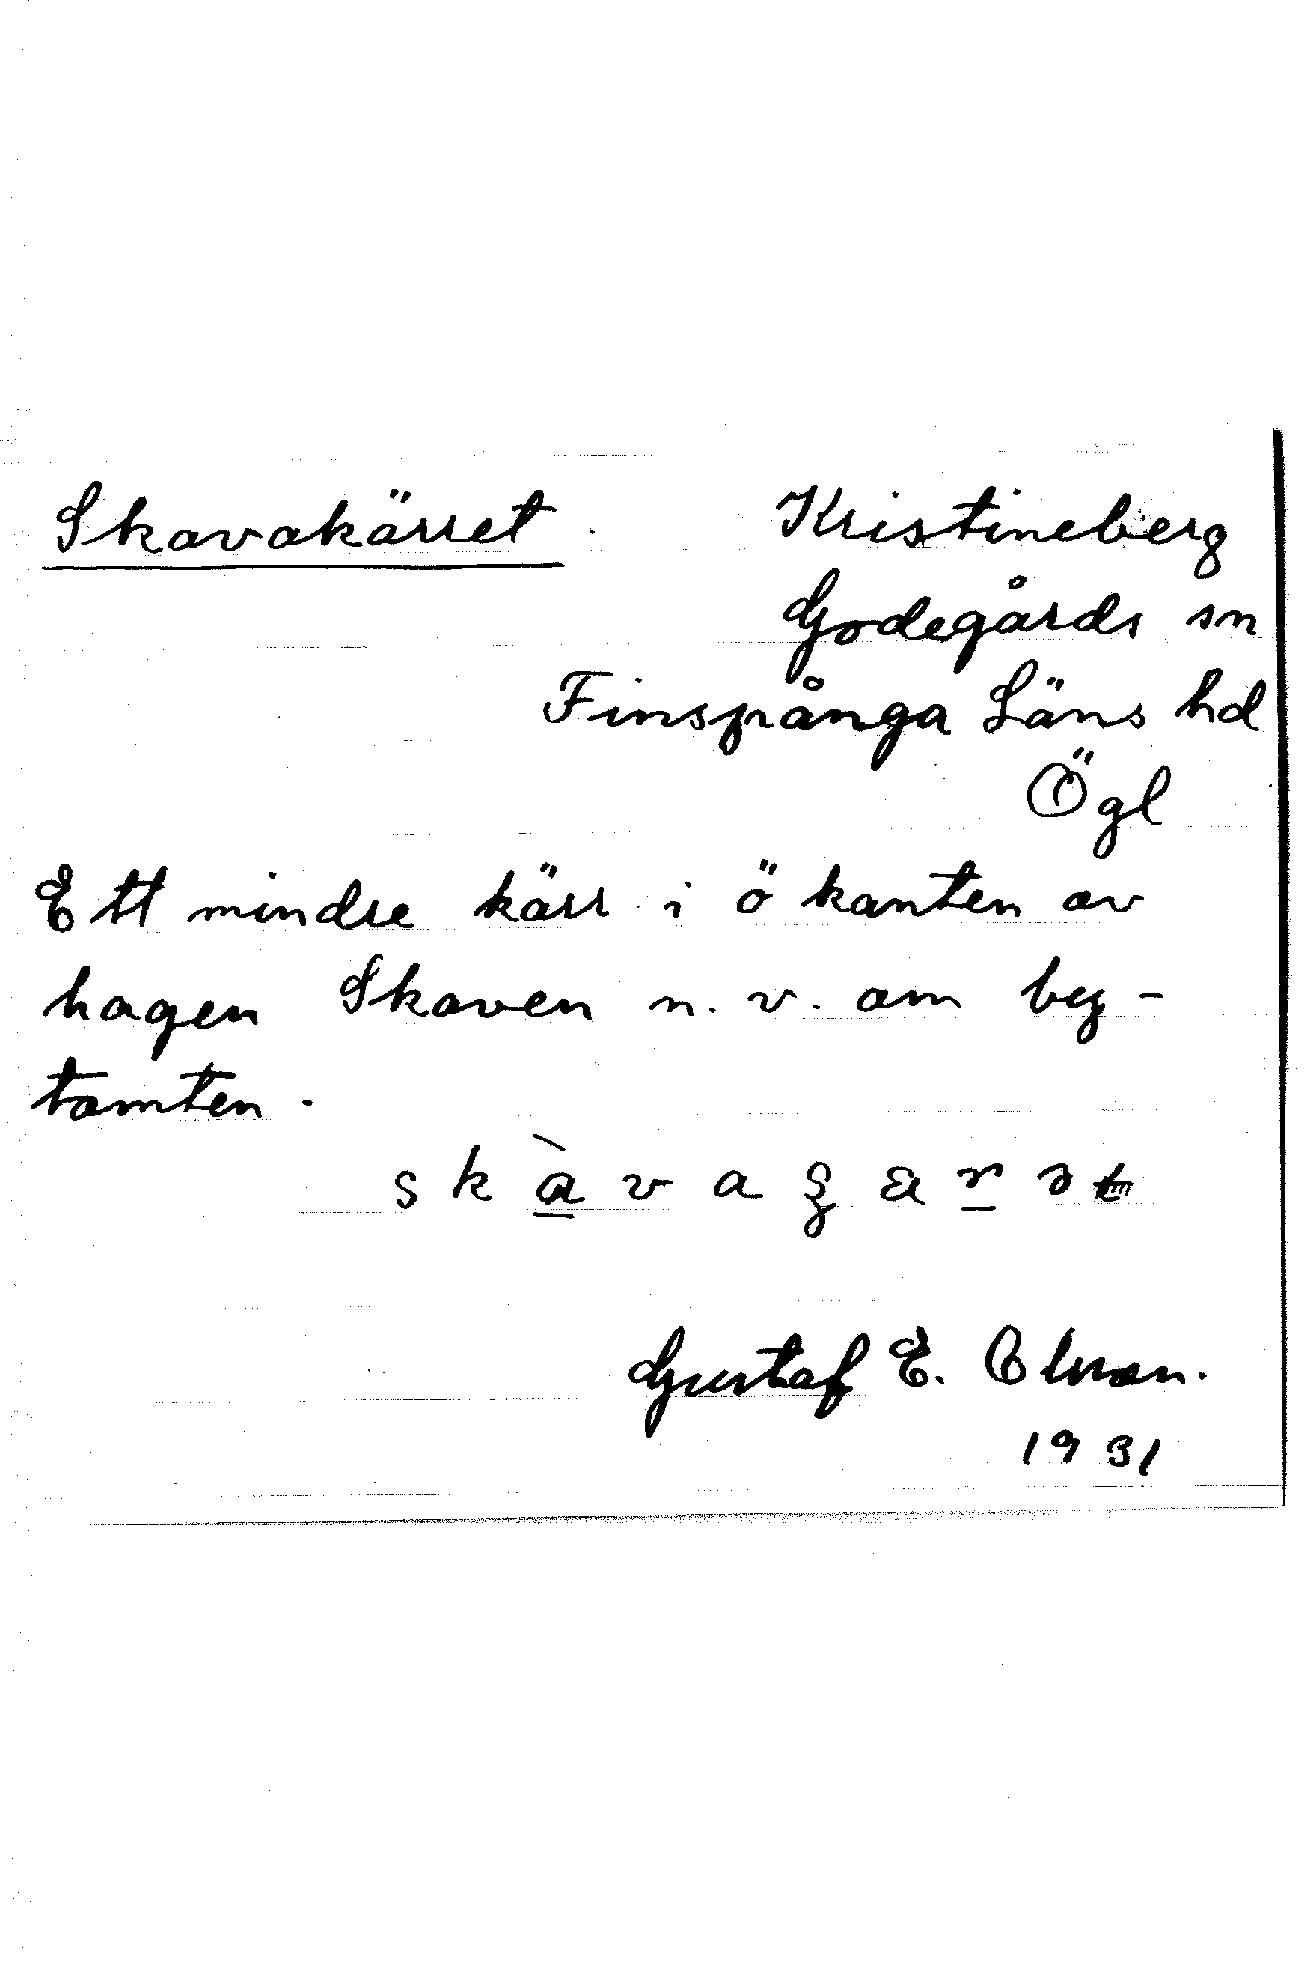 Skavakärret. Kristineberg
Godegårds sn
Finspånga Läns hd
Ögl
Ett mindre kärr i ö kanten av
hagen Skaven n.v. om byg-
tomten.
Gustaf E.
1931